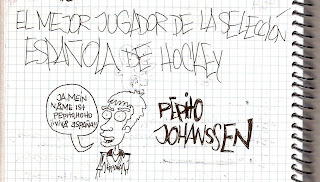 EL MEJOR JUGADOR DE LA SELECCIÓN
ESPAÑOLA DE HOCKEY
JA, MEIN
NAME IST
PEPITO, HOHO
¡VIVA ESPAÑA!
PEPITO
JOHANSSEN